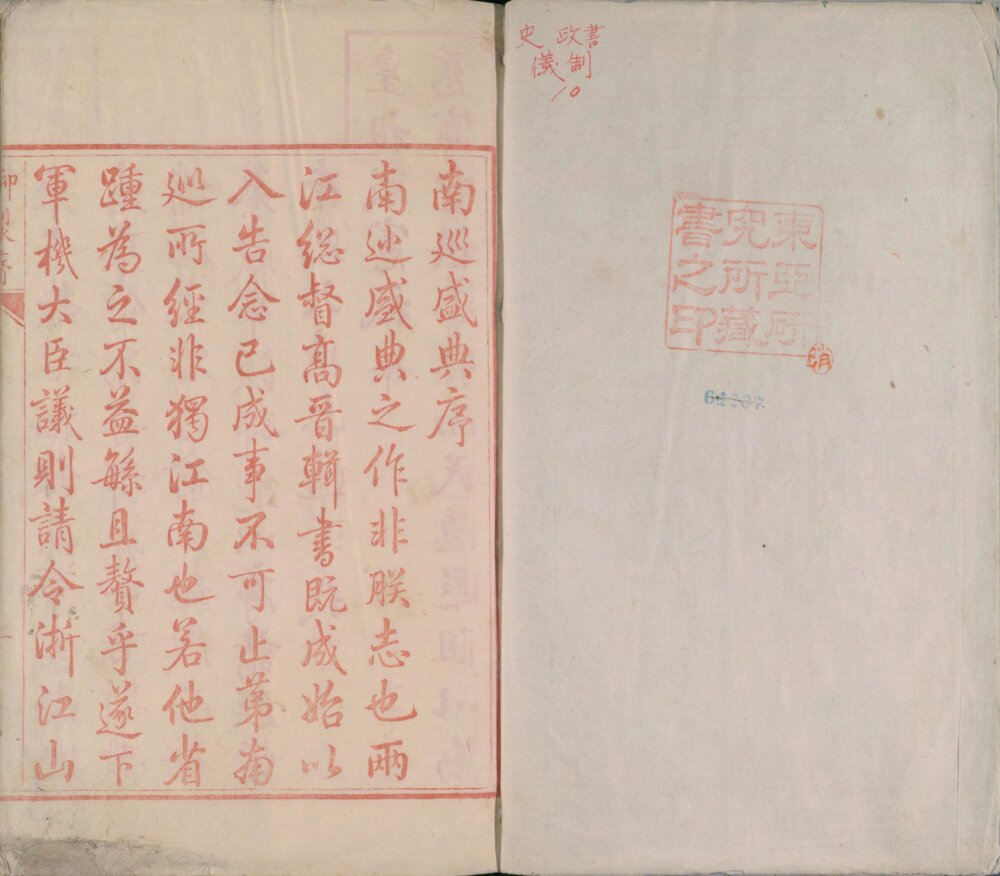 史 政 書
儀 制
10
東亞所
究所藏
書之印
消
南巡盛典序
南巡盛典之作非朕志也兩
江総督髙晋輯書既成始以
入告念已成事不可止第南
巡所經非獨江南也若他省
踵為之不益繇且贅乎遂下
軍機大臣議則請令浙江山